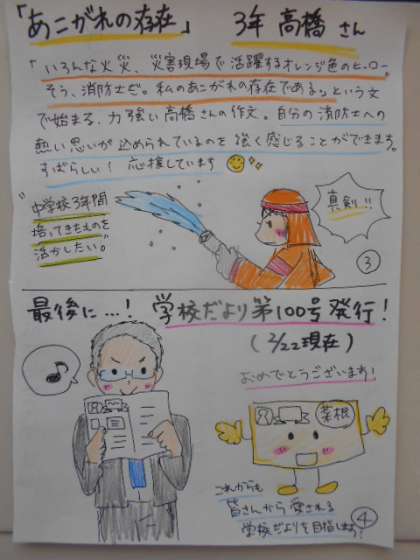 「あこがれの存在」 3年 高橋 さん
「いろんな火災、災害現場で活躍するオレンジ色のヒーロー。
そう、消防士だ。私のあこがれの存在である。」という文
で始まる、力強い高橋さんの作文。自分の消防士への
熱い思いが込められているのを強く感じることができます。
すばらしい！応援しています
"中学校3年間
培ってきたものを
活かしたい。"
真剣!!
3
最後に…! 学校だより第100号発行!
(2/22現在)
おめでとうございます!
葉根
これからも
皆さんから愛される
学校だよりを目指します!
4